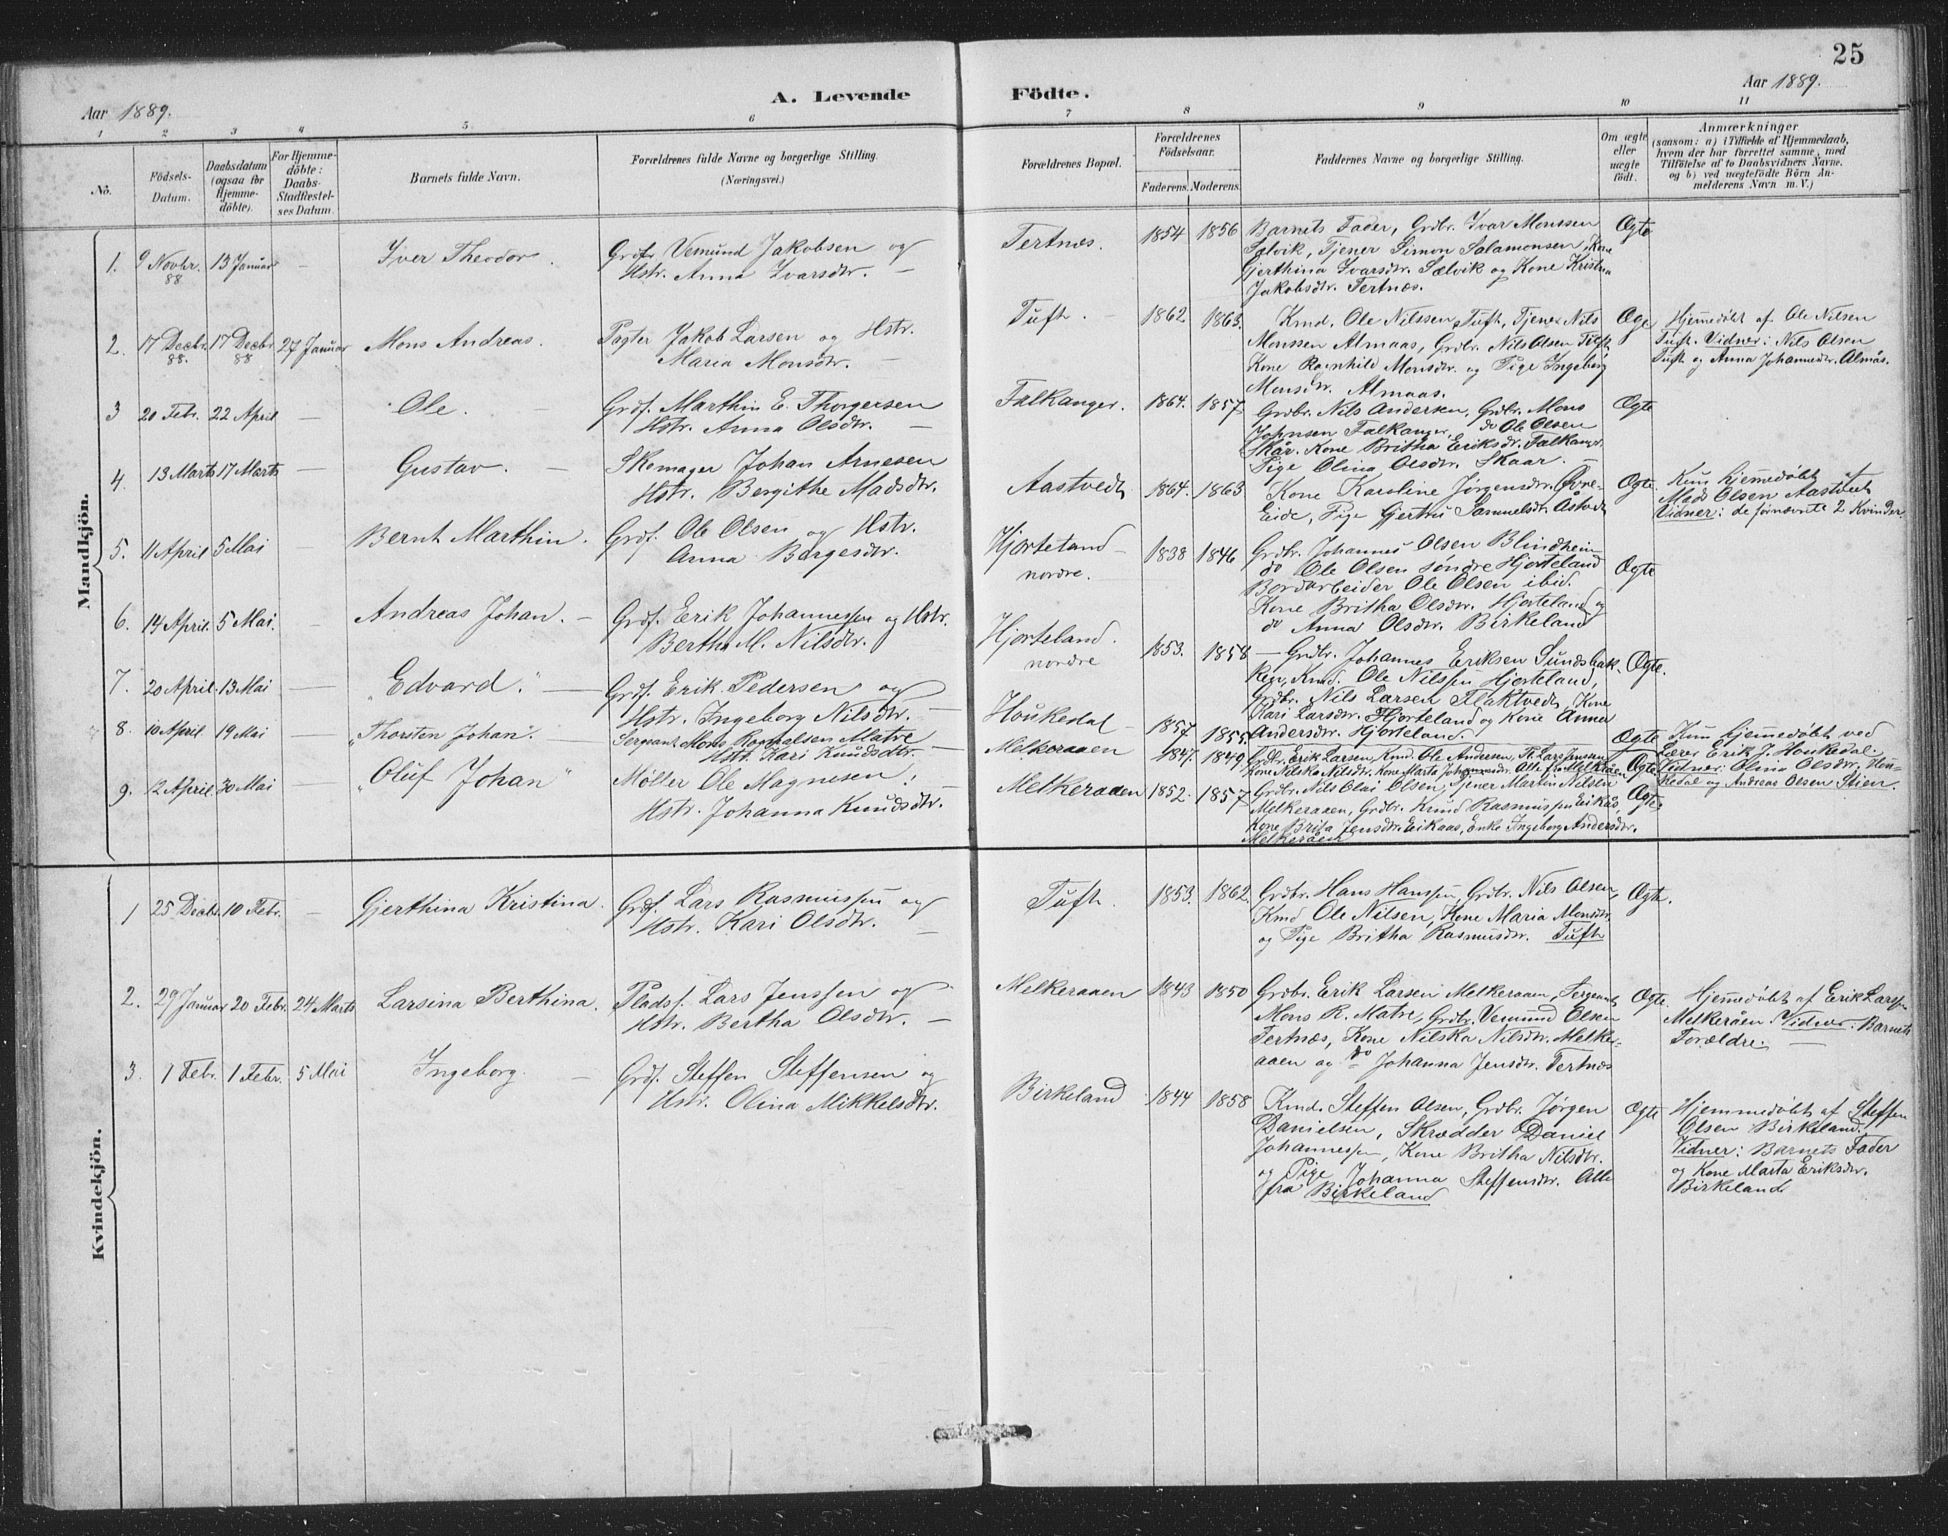 25
Aar 1889.
A. Levende Födte.
Aar 1889.
1 2 3 4 5 6 7 8 9 10 11
No.
Födsels-Datum.
Daabsdatum (ogsaa for Hjemme-döbte).
For Hjemme-döbte: Daabs-Stadfæstel-ses Datum.
Barnets fulde Navn.
Forældrenes fulde Navne og borgerlige Stilling.
(Næringsvei.)
Forældrenes Bopæl.
Forældrenes Födselsaar.
Faderens. Moderens.
Faddernes Navne og borgerlige Stilling.
Om ægte eller uægte födt.
Anmærkninger
(saasom: a) i Tilfælde af Hjemmedaab, hvem der har forrettet samme, med Tilföielse af to Daabsvidners Navne. og b) ved uægtefödte Börn An-melderens Navn m. V.)
Mandkjön.
1. 9 Novbr. 88 13 Januar — Iver Theodor. Grdf. Vemund Jakobsen og
Hstr. Anna Ivarsdtr. —
Tertnæs. 1854 1856 Barnets Fader, Grdbr. Ivar Monssen
Sælvik, Tjener Simon Salamonsen, Kone
Gjerthina Ivarsdtr. Sælvik og Kone Kristna
Jakobsdtr. Tertnæs.
Ægte
2. 17 Decbr. 88. 17 Decbr. 88 27 Januar Mons Andreas. Pagter Jakob Larsen og Hstr.
Maria Monsdtr. —
Tuft. — 1862 1863. Kmd. Ole Nilssen Tuft, Tjener Nils
Monssen Almaas, Grdbr. Nils Olsen Tuft
Kone Ragnhild Monsdtr. og Pige Ingeborg
Monsdtr. Almaas.
Ægte
Hjemmedøbt af Ole Nilsen
Tuft. Vidner: Nils Olsen
Tuft og Anna Johannedtr. Almås.
3 20 Febr. 22 April — Ole. — Grdf. Marthin E. Thorgersen
Hstr. Anna Olsdtr. —
Falkanger. 1864. 1857 Grdbr. Nils Andersen, Grdbr. Mons
Johnsen Falkanger, do Ole Olsen
Skår. Kone Britha Eriksdtr. Falkanger.
Pige Olina Olsdtr. Skaar. —
Ægte
4. 13 Marts 17 Marts — Gustav. — Skomager Johan Arnesen
Hstr. Bergithe Madsdtr.
Aastvedt 1864. 1863 Kone Karoline Jørgensdr. Øvre-
Eide, Pige Gjertru Sammelsdtr. Åstvedt
Ægte.
Kun hjemmedøbt af
Mads Olsen Aastvedt
Vidner: de førnævnte 2 Kvinder.
5. 11 April 5 Mai — Bernt Marthin. Grdf. Ole Olsen og Hstr.
Anna Børgesdtr.
Hjorteland nordre. 1838 1846 Grdbr. Johannes Olsen Blindheim
do Ole Olsen søndre Hjorteland
Bordarbeider Ole Olsen ibid.
Kone Britha Olsdtr. Hjorteland og
do Anna Olsdtr. Birkeland
Ægte
6. 14 April. 5 Mai. — Andreas Johan. — Grdf. Erik Johannessen og Hstr.
Bertha M. Nilsdtr.
Hjorteland. nordre 1853. 1858 — Grdbr. Johannes Eriksen Sundsbak-
ken, Kmd. Ole Nilssen Hjorteland,
Grdbr. Nils Larsen Flaktvedt, Kone
Kari Larsdtr. Hjorteland og Kone Anna
Andersdtr. Hjorteland.
Ægte.
7. 20 April. 13 Mai — Edvard. — Grdf. Erik Pedersen og
Hstr. Ingeborg Nilsdtr. —
Houkedal — 1857 1855. Ægte
Kun hjemmedøbt ved
Lærer Erik J. Houkedal.
Vidner: Olina Olsdtr. Hou-
kedal og Andreas Olsen Stien.
8. 10 April 19 Mai — Thorsten Johan. — Sergeant Mons Ragnalsen Matre
Hstr. Kari Knudsdtr. —
Melkeraaen 1847. 1849 Grdbr. Erik Larsen, Kmd. Ole Andersen, Tj. Lars Jenssen
Kone Nilska Nilsdtr. Kone Marta Johannesdtr. Alle fra Melkråen
Ægte
9. 12 April 30 Mai — Oluf Johan Møller Ole Magnesen,
Hstr. Johanna Knudsdtr.
Melkeraaen 1852. 1857 Grdbr. Nils Olai Olsen, Tjener Martin Nilsen
Melkeraaen, Grdbr. Knud Rasmussen Eikås,
Kone Brita Jensdtr. Eikaas, Enke Ingeborg Andersdtr.
Melkeråen
Ægte,
Kvindekjön.
1 25 Decbr. 10 Febr. — Gjerthina Kristina. Grdf. Lars Rasmussen og
Hstr. Kari Olsdtr. —
Tuft. 1853. 1862. Grdbr. Hans Hanssen, Grdbr. Nils Olsen,
Kmd Ole Nilsen, Kone Maria Monsdtr.
og Pige Britha Rasmusdtr. Tuft
Ægte.
2. 29 Januar 20 Febr. 24 Marts Larsina Berthina. Pladsf. Lars Jenssen og
Hstr. Bertha Olsdtr. —
Melkeraaen 1843 1850 Grdbr. Erik Larsen Melkeraaen, Sergeant
Mons R. Matre, Grdbr. Vemund Olsen
Tertnæs, Kone Nilska Nilsdtr. Melker-
aaen og do Johanna Jensdtr. Tertnæs
Ægte.
Hjemmedøbt af Erik Larsen
Melkeråen. Vidner: Barnets
Forældre. —
3. 1 Febr. 1 Febr. 5 Mai Ingeborg. — Grdf. Steffen Steffensen og
Hstr. Olina Mikkelsdtr.
Birkeland 1844 1858 Kmd. Steffen Olsen, Grdbr. Jørgen
Danielsen, Skrædder Daniel
Johannessen, Kone Britha Nilsdtr.
og Pige Johanna Steffensdtr. Alle
fra Birkeland
Ægte
Hjemmedøbt af Steffen
Olsen Birkeland.
Vidner: Barnets Fader
og Kone Marta Eriksdtr.
Birkeland